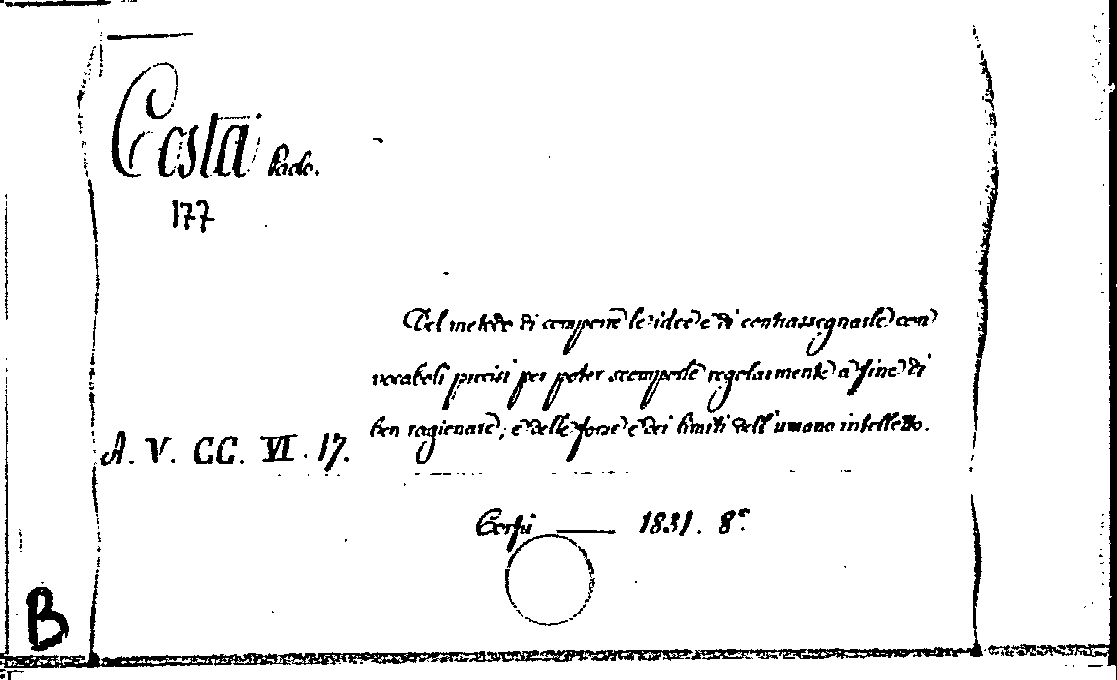 Costa Paolo.
177
Del metodo di comporre le idee e di contrassegnarle con
vocaboli precisi per poter scomporle regolarmente a fine di
ben ragionare, e delle forze e dei limiti dell'umano intelletto.
A. V. CC. VI. 17.
Corfù — 1831. 8°.
B